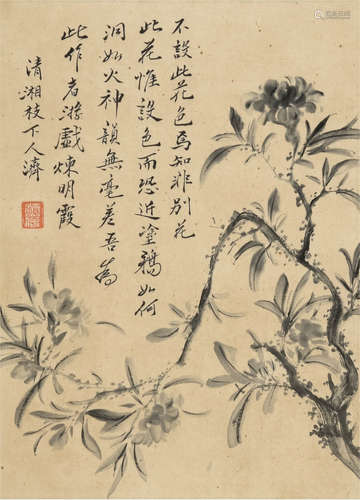 不設此花色焉知非別花
此花惟設色而恐近塗鴉如何
洞如火神韻無毫差吾為
此作者游戲煉明霞
清湘枝下人濟